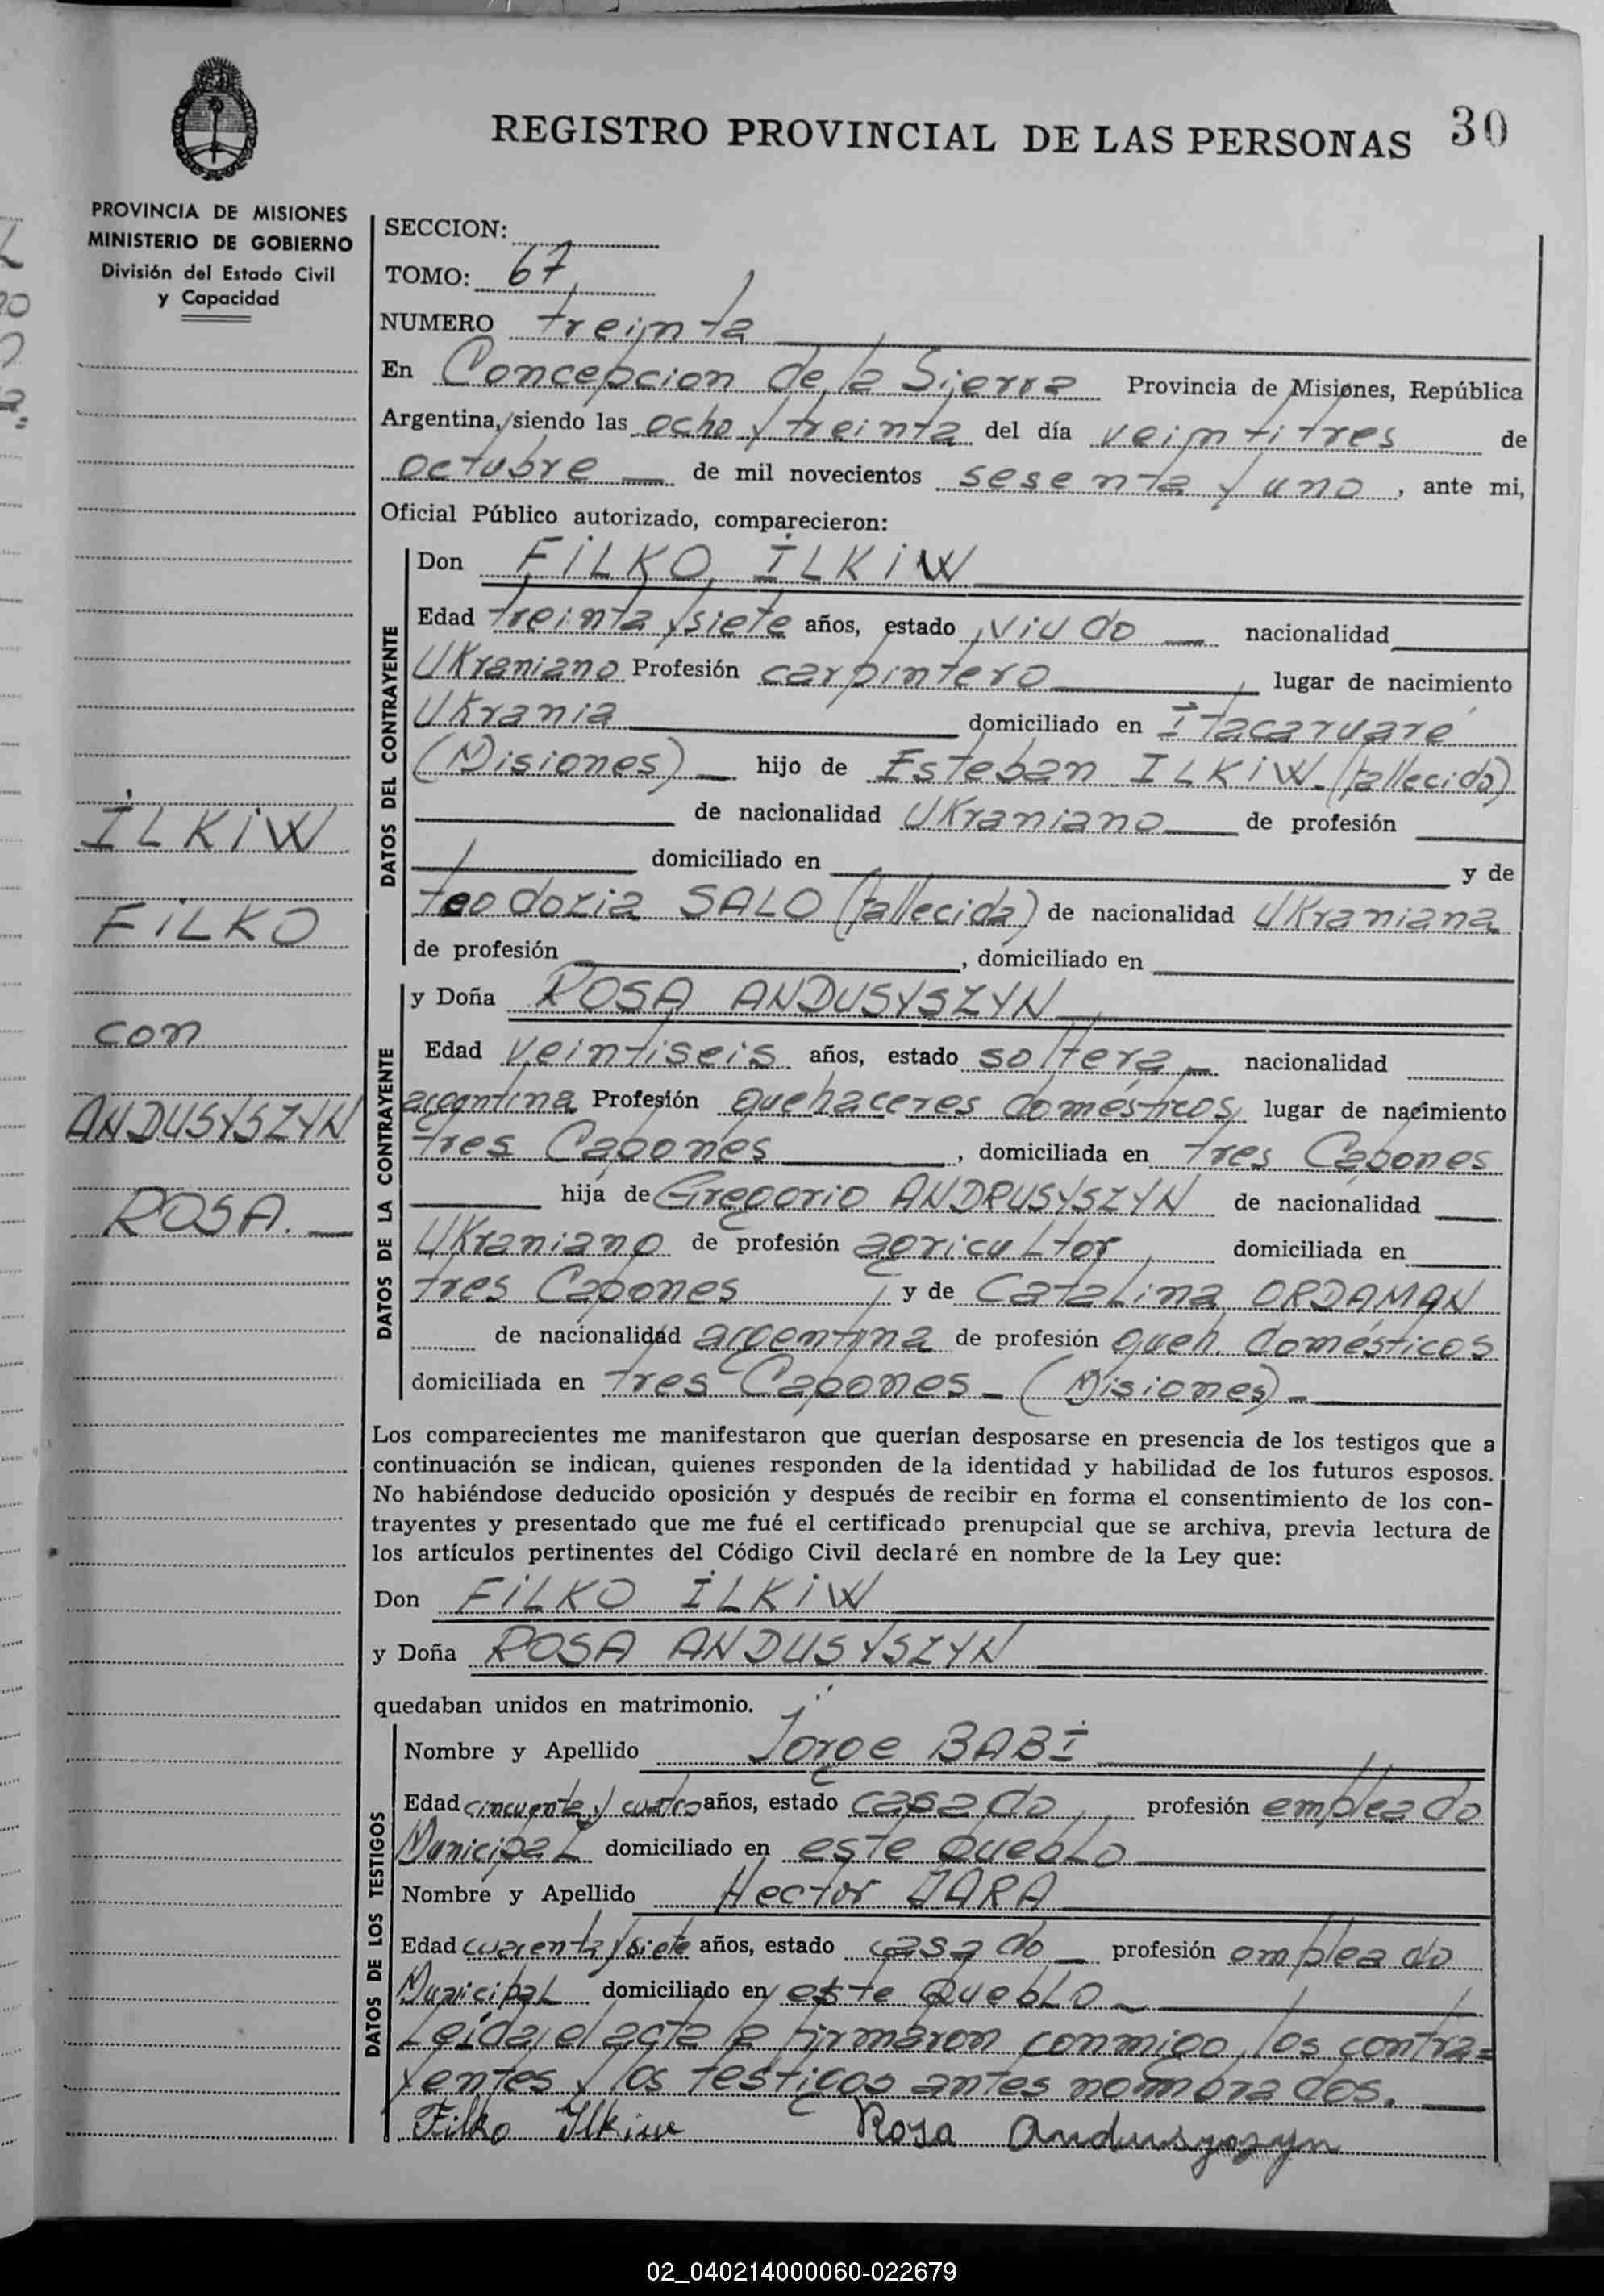 REGISTRO PROVINCIAL DE LAS PERSONAS 30
PROVINCIA DE MISIONES
MINISTERIO DE GOBIERNO
División del Estado Civil
y Capacidad
ILKIW
FILKO
con
ANDUSYSZYN
ROSA.
SECCION:
TOMO: 67
NUMERO treinta
En Concepcion de la Sierra Provincia de Misiones, República
Argentina, siendo las ocho y treinta del día veintitres de
octubre de mil novecientos sesenta y uno, ante mi,
Oficial Público autorizado, comparecieron:
DATOS DEL CONTRAYENTE
Don FILKO ILKIW
Edad treinta y siete años, estado viudo nacionalidad
Ukraniano Profesión carpintero lugar de nacimiento
Ukrania domiciliado en Itacaruaré
(Misiones) hijo de Esteban ILKIW (fallecido)
de nacionalidad Ukraniano de profesión
domiciliado en y de
teodozia SALO (fallecida) de nacionalidad Ukraniana
de profesión , domiciliado en
DATOS DE LA CONTRAYENTE
y Doña ROSA ANDUSYSZYN
Edad veintiseis años, estado soltera nacionalidad
argentina Profesión quehaceres domésticos, lugar de nacimiento
tres Capones , domiciliada en tres Capones
hija de Gregorio ANDRUSYSZYN de nacionalidad
Ukraniano de profesión agricultor domiciliada en
tres Capones y de Catalina ORDAMAN
de nacionalidad argentina de profesión queh. domésticos
domiciliada en tres Capones - (Misiones) -
Los comparecientes me manifestaron que querían desposarse en presencia de los testigos que a
continuación se indican, quienes responden de la identidad y habilidad de los futuros esposos.
No habiéndose deducido oposición y después de recibir en forma el consentimiento de los con-
trayentes y presentado que me fué el certificado prenupcial que se archiva, previa lectura de
los artículos pertinentes del Código Civil declaré en nombre de la Ley que:
Don FILKO ILKIW
y Doña ROSA ANDUSYSZYN
quedaban unidos en matrimonio.
DATOS DE LOS TESTIGOS
Nombre y Apellido Jorge BABI
Edad cincuenta y cuatro años, estado casado, profesión empleado
Municipal domiciliado en este pueblo
Nombre y Apellido Hector JARA
Edad cuarenta y siete años, estado casado profesión empleado
Municipal domiciliado en este pueblo
Leida el acta la firmaron conmigo, los contra=
yentes y los testigos antes nombrados.
Filko Ilkiw Rosa Andusyszyn
02_040214000060-022679